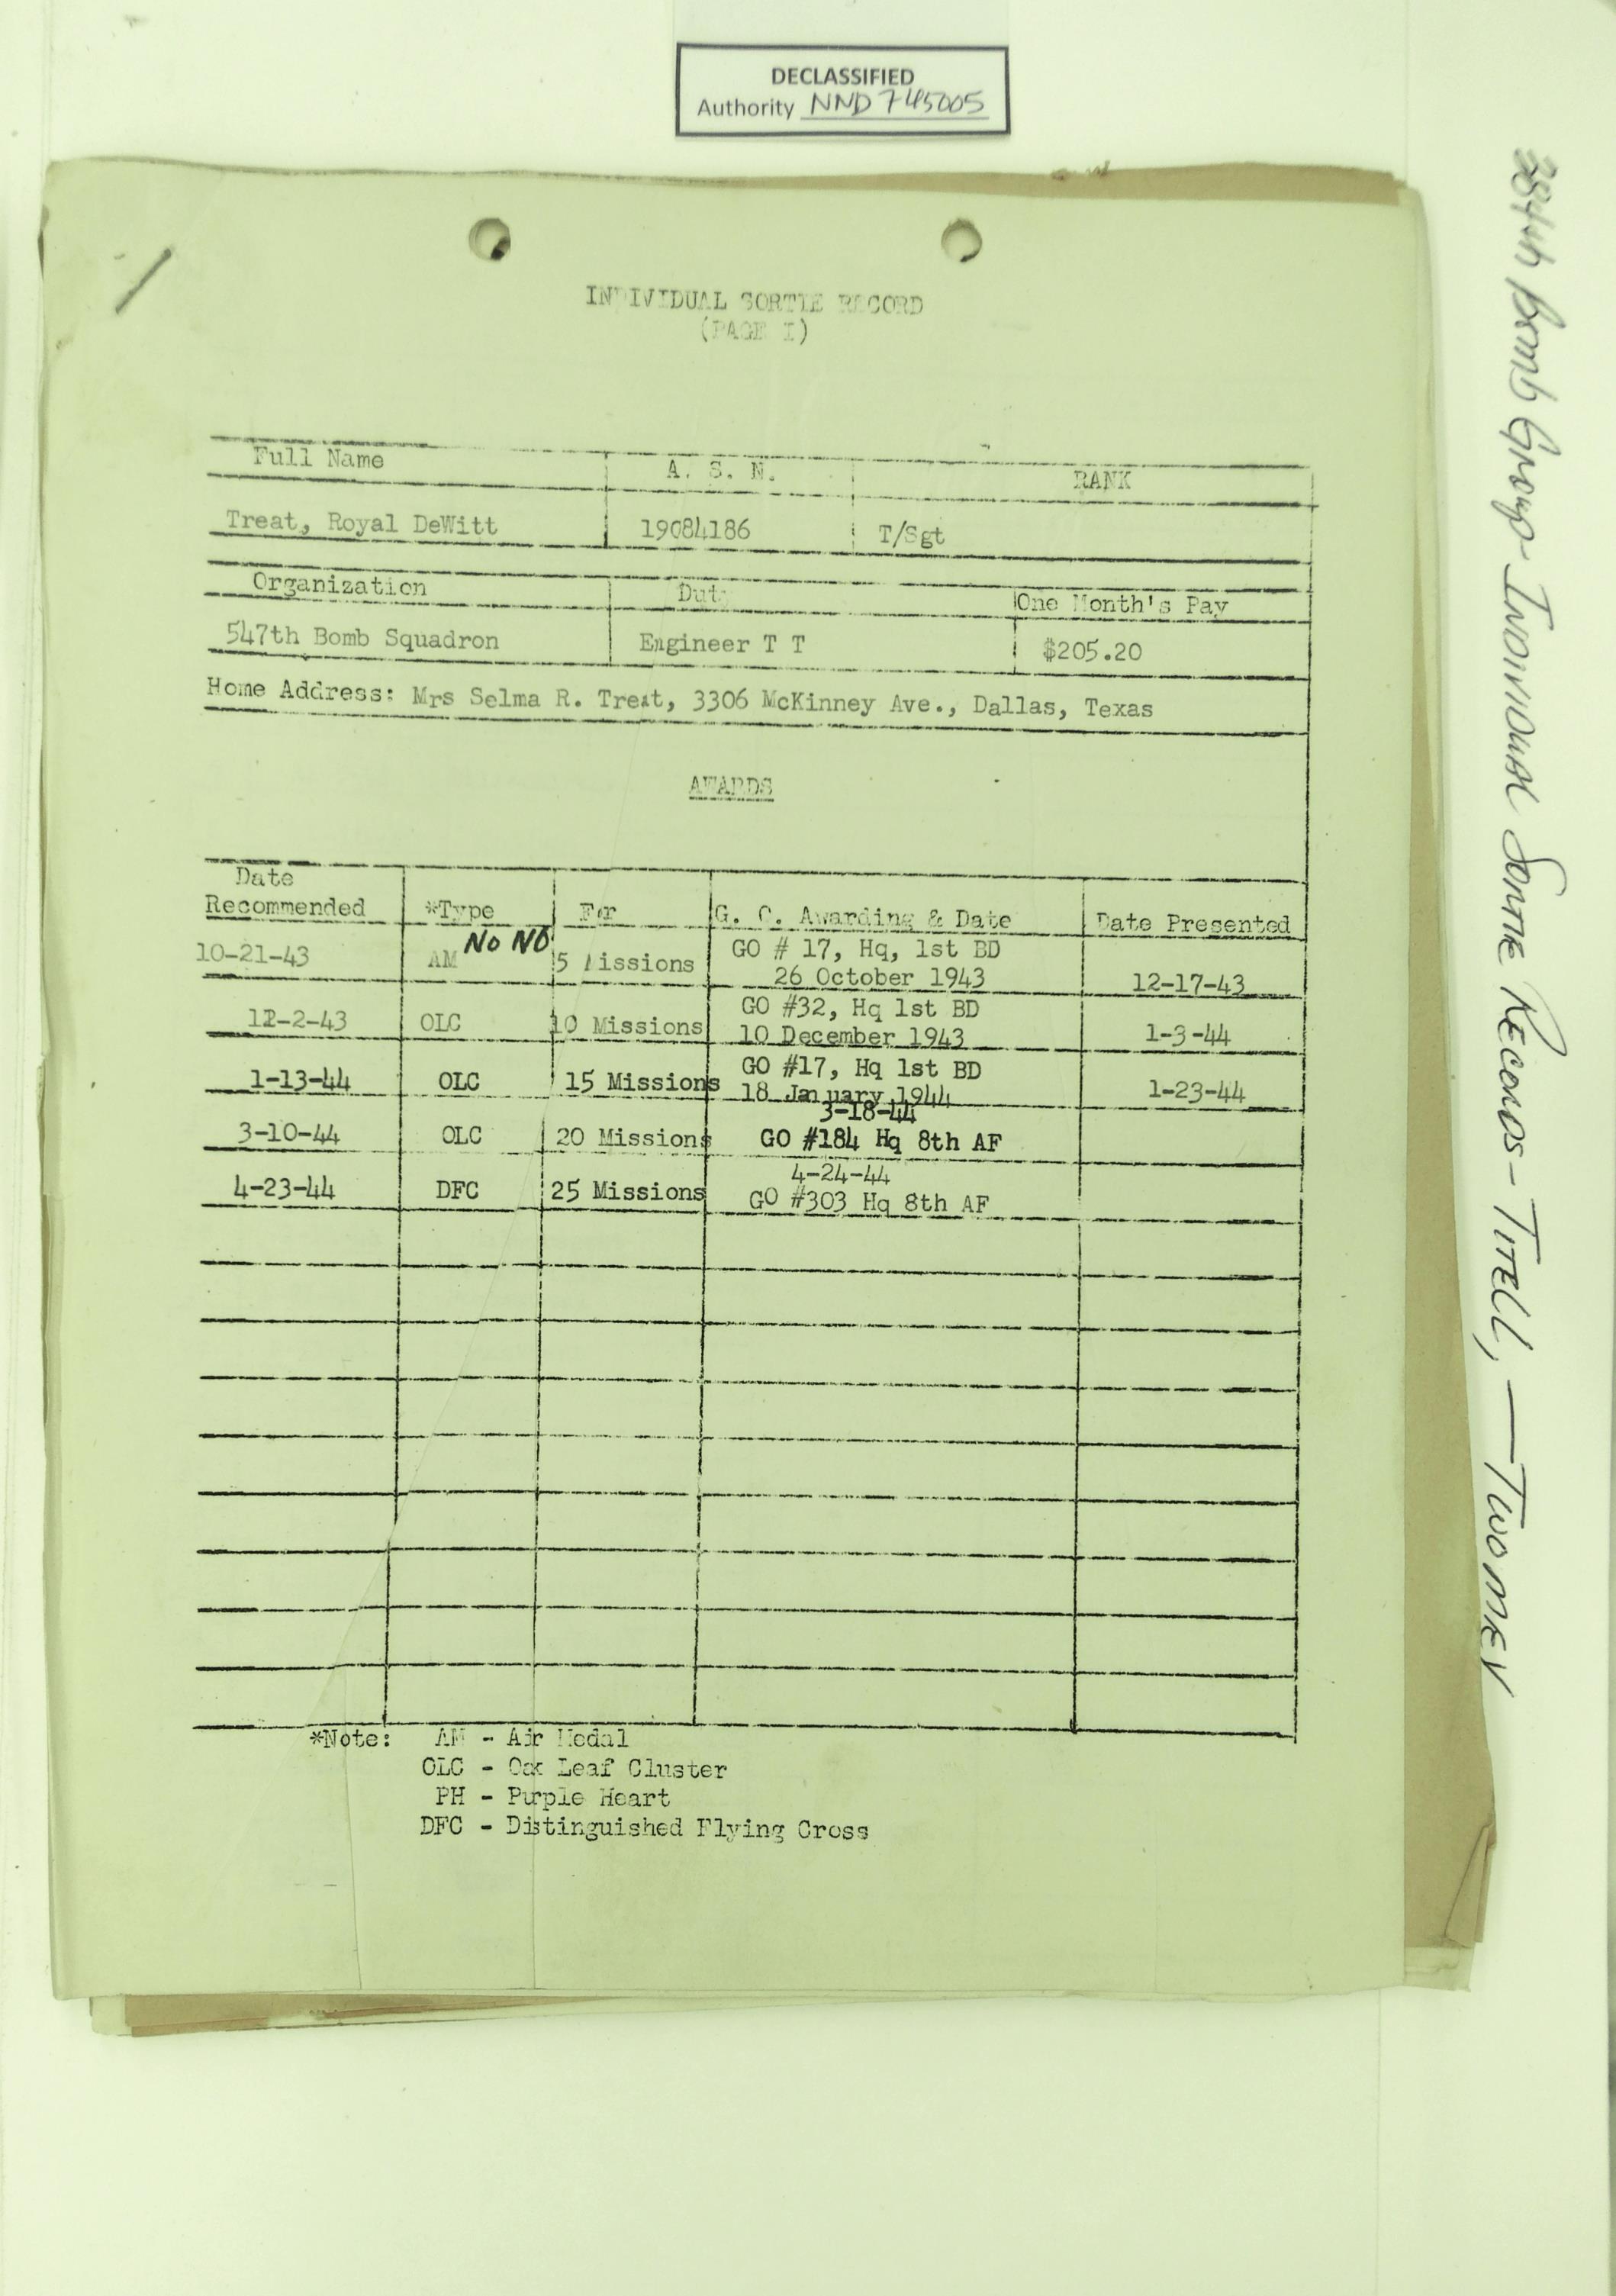 DECLASSIFIED
Authority NND 745005
384th Bomb Group - Individual Sortie Records - Titell, — Twomey
INDIVIDUAL SORTIE RECORD
(PAGE I)
Full Name A. S. N. RANK
Treat, Royal DeWitt 19084186 T/Sgt
Organization Duty One Month's Pay
547th Bomb Squadron Engineer T T $205.20
Home Address: Mrs Selma R. Treat, 3306 McKinney Ave., Dallas, Texas
AWARDS
Date
Recommended *Type For G. O. Awarding & Date Date Presented
No NO
10-21-43 AM 5 Missions GO # 17, Hq, 1st BD
26 October 1943 12-17-43
12-2-43 OLC 10 Missions GO #32, Hq 1st BD
10 December 1943 1-3-44
1-13-44 OLC 15 Missions GO #17, Hq 1st BD
18 January 1944 1-23-44
3-18-44
3-10-44 OLC 20 Missions GO #184 Hq 8th AF
4-24-44
4-23-44 DFC 25 Missions GO #303 Hq 8th AF
*Note: AM - Air Medal
OLC - Oak Leaf Cluster
PH - Purple Heart
DFC - Distinguished Flying Cross